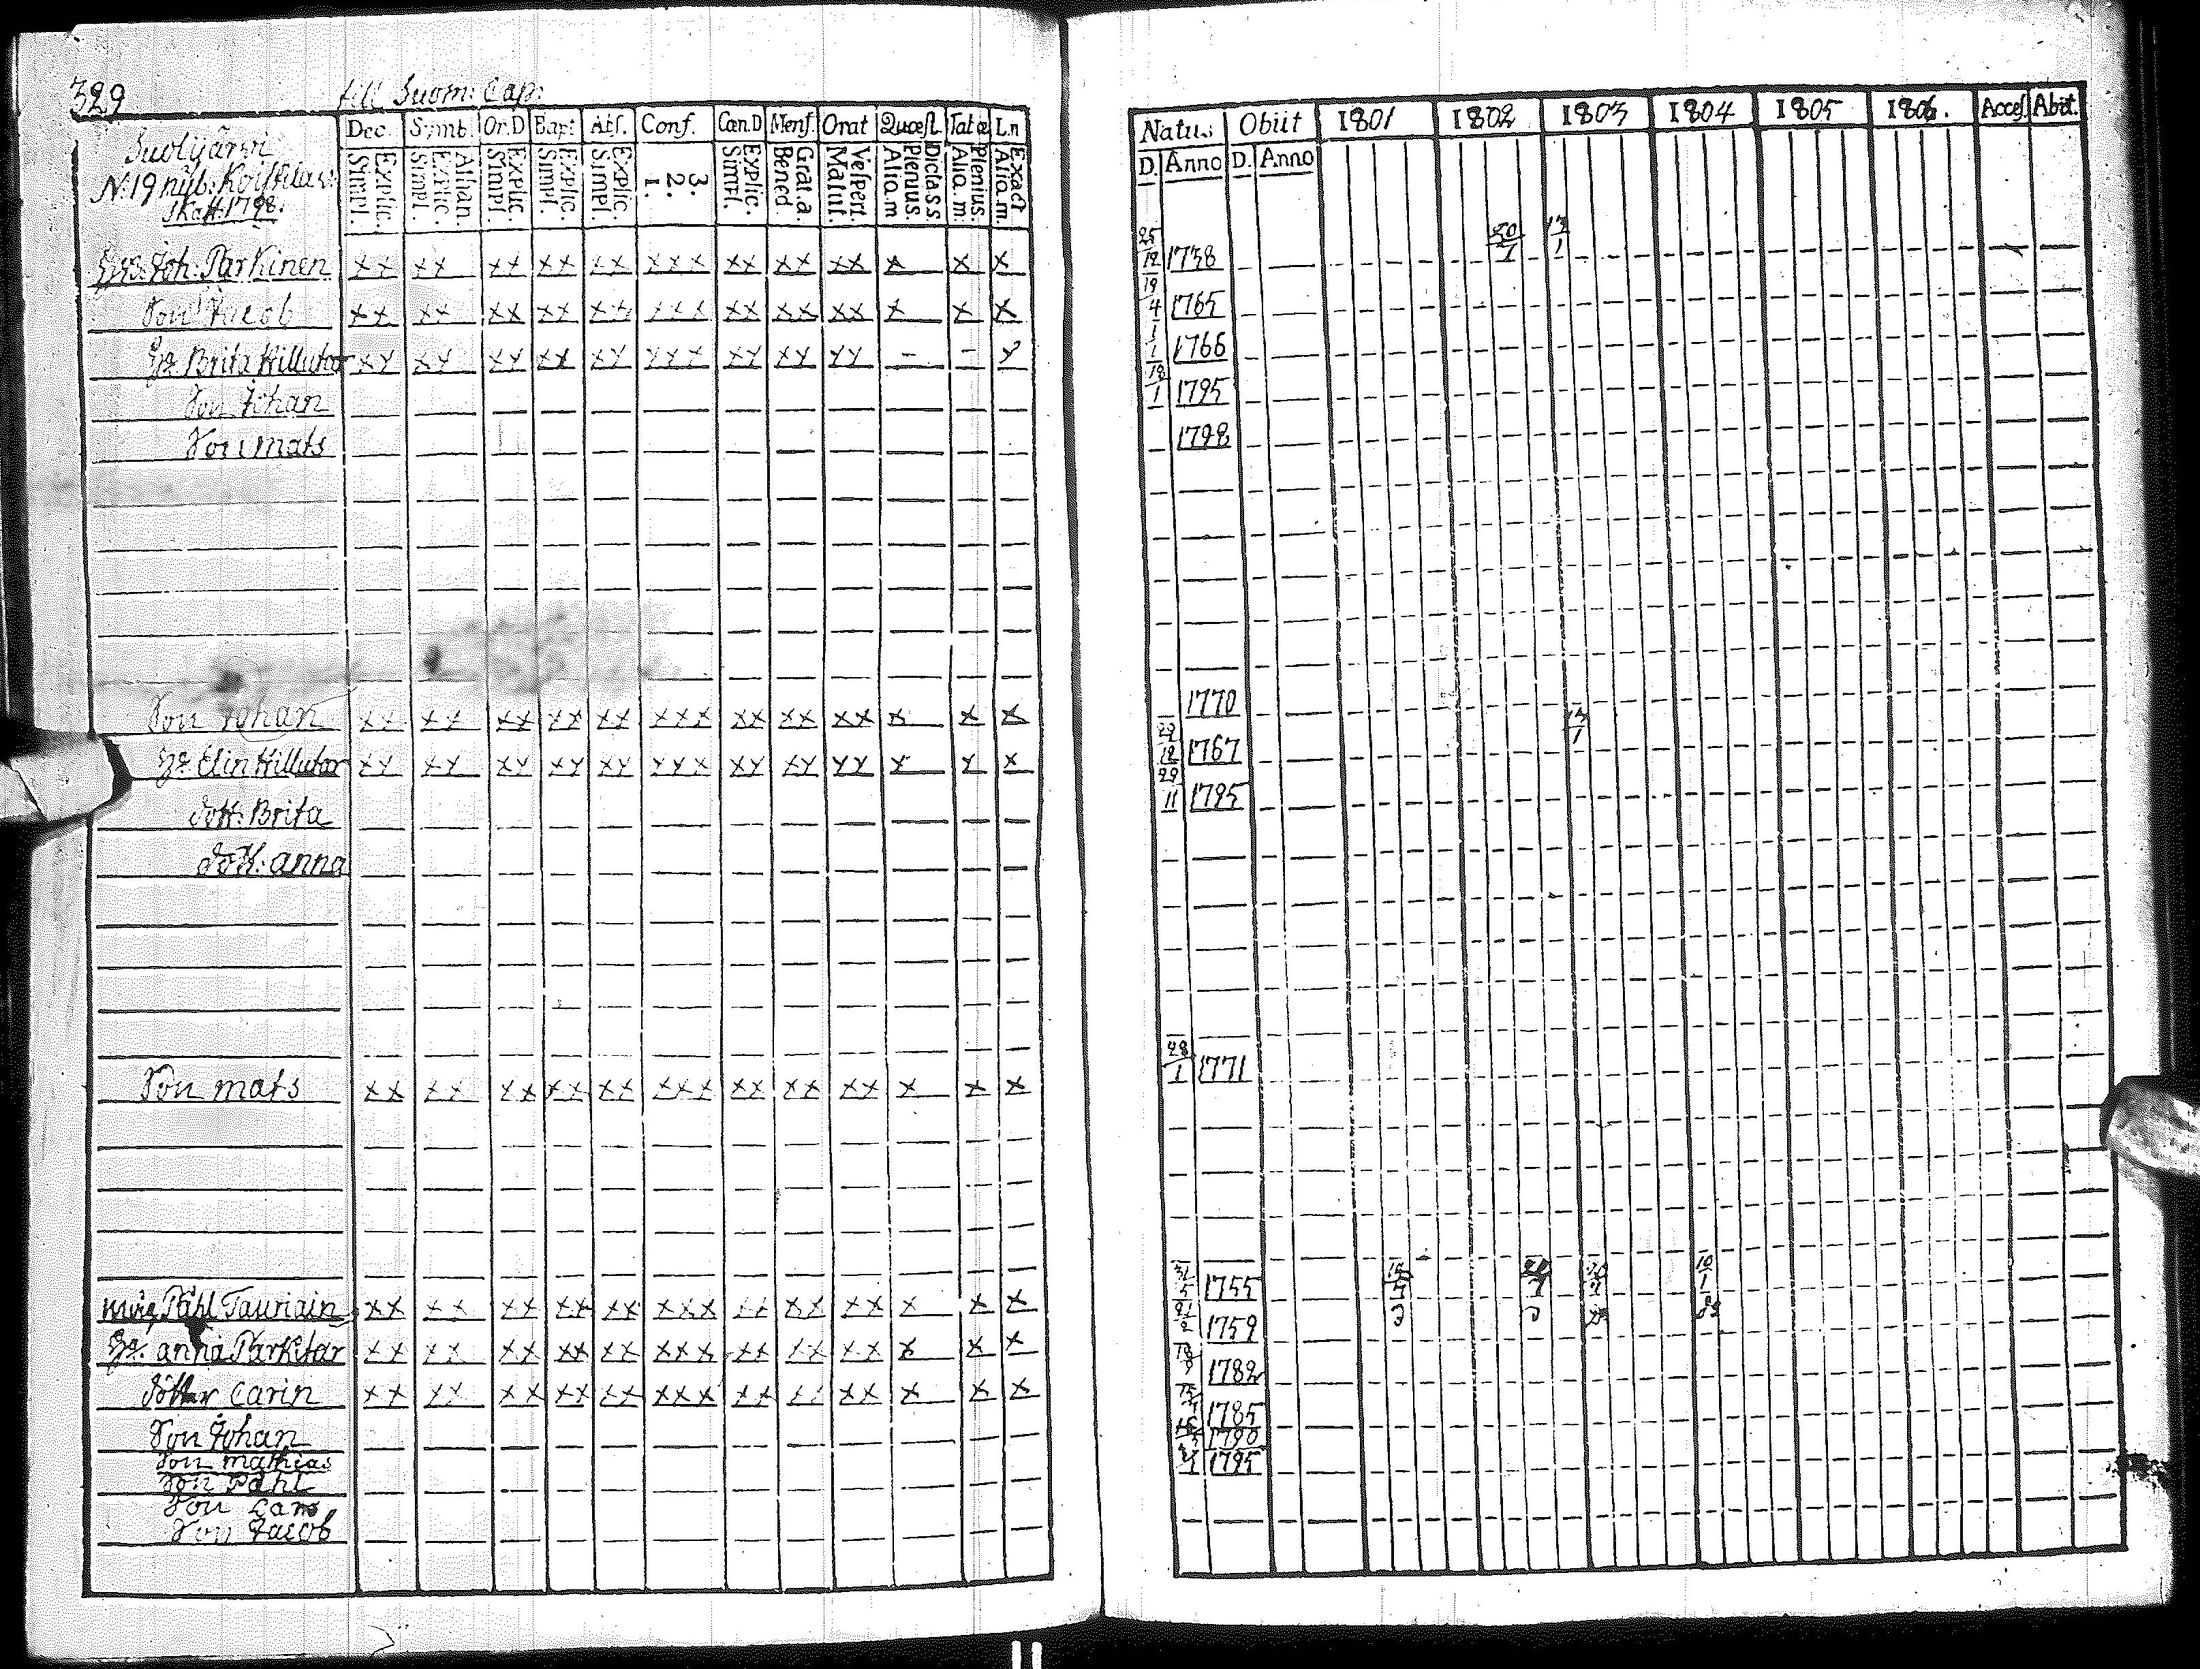 329
till Suom: Cap:
Suolijärvi
N:19 nyb: Koistila
Skatt: 1798.
Dec. Symb. Or.D Bapt Abs. Conf. Can.D Mens. Orat Quæst. Tabæ L.n
Explic. Simpl. Athan. Explic. Simpl. Explic. Simpl. Explic. Simpl. Explic. Simpl. 3. 2. 1. Explic. Simpl. Grat.a. Bened. Vespert. Matut. Dictass. Plenius. Aliq.m Plenius. Aliq.m. Exact Aliq.m.
Natus Obiit 1801 1802 1803 1804 1805 1806. Acces. Abiit.
D. Anno D. Anno
Joh: Parkinen xx xx xx xx xx xxx xx xx xx x x x 25/12 1738 13/1
Son Jacob xx xx xx xx xx xxx xx xx xx x x x 19/4 1765
H: Brita Hillutar xx xx xx xx xx xxx xx xx xx - - x 1/1 1766
Son Johan 18/1 1795
Son mats 1798
Son Johan xx xx xx xx xx xxx xx xx xx x x x 1770
H: Elin Hillutar xx xx xx xx xx xxx xx xx xx x x x 1767
dott: Brita 29/11 1795
dott: anna
Son mats xx xx xx xx xx xxx xx xx xx x x x 28/1 1771
Påhl Tauriain xx xx xx xx xx xxx xx xx xx x x x 31/5 1755 10/1
H: anna Parkitar xx xx xx xx xx xxx xx xx xx x x x 21/2 1759
dotter Carin xx xx xx xx xx xxx xx xx xx x x x 1782
Son Johan 1785
Son mathias 1790
Son Påhl 1795
Son Lars
Son Jacob